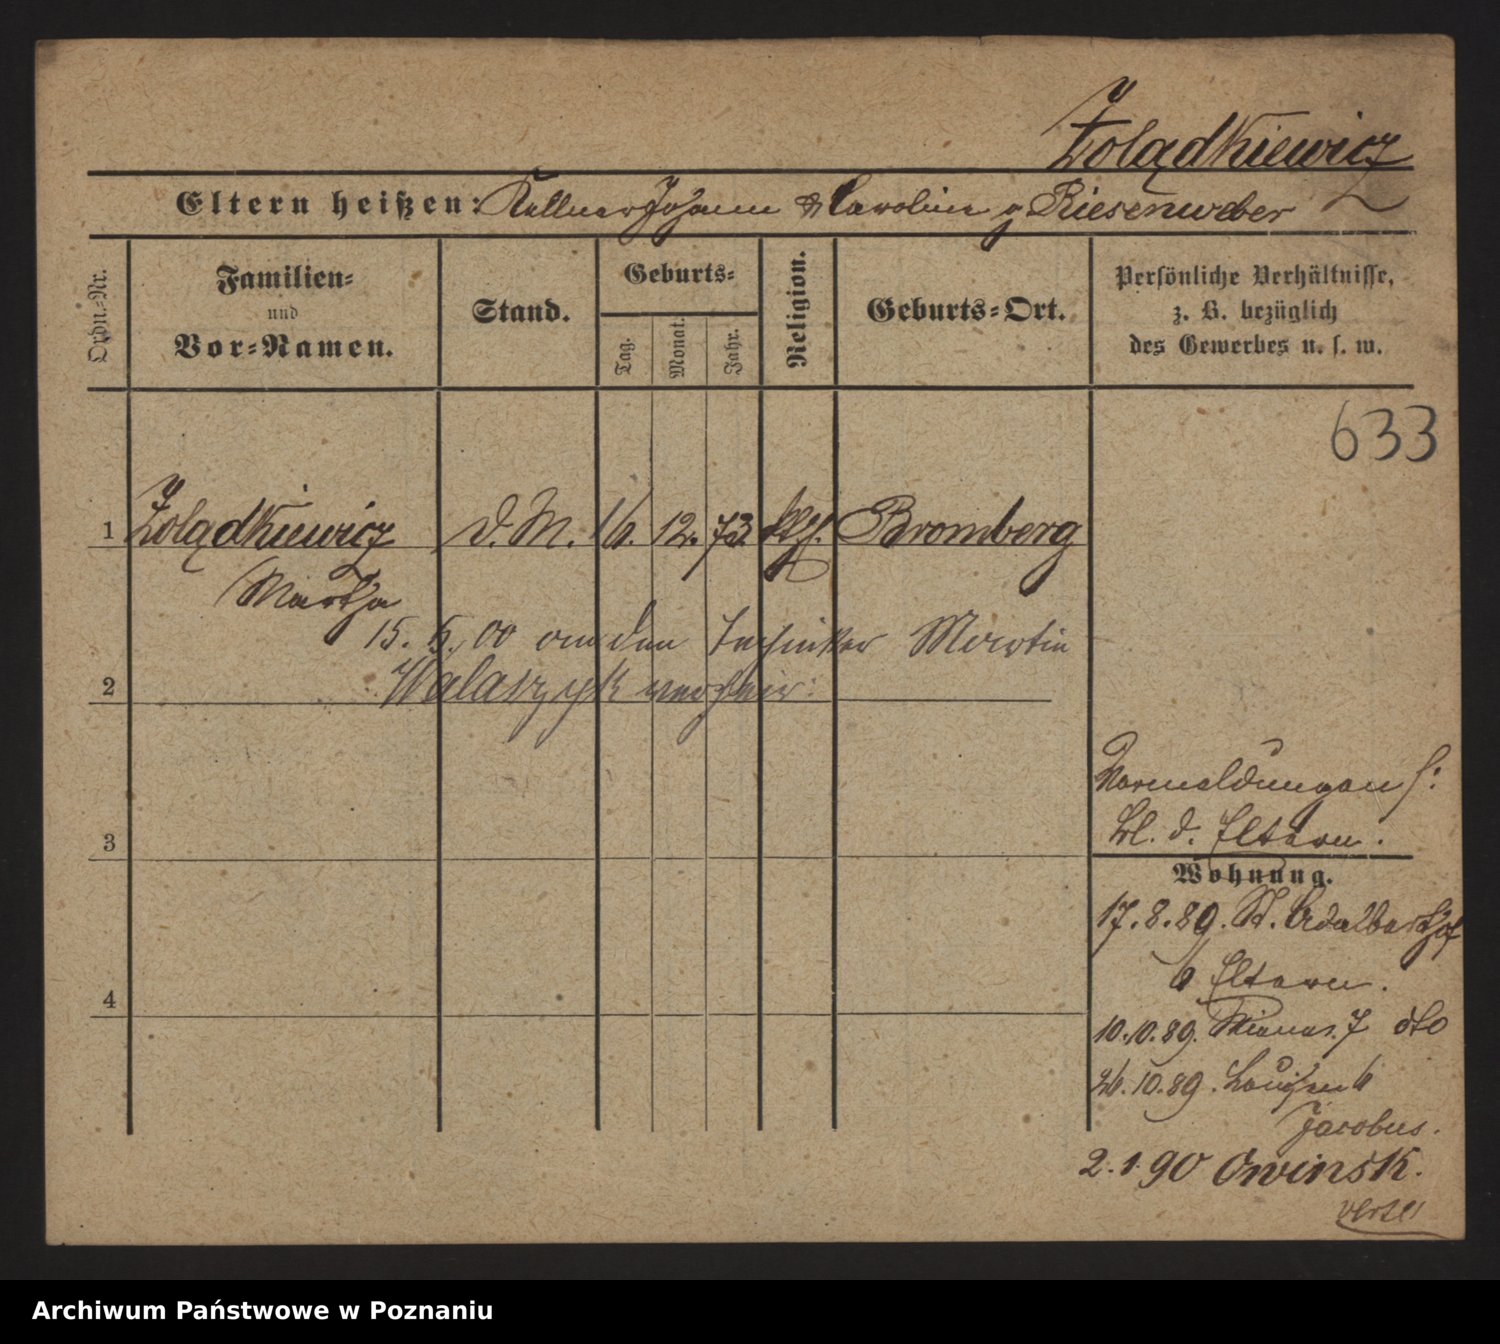 Żolądkiewicz
Eltern heißen: Kellner Johann & Caroline g. Riesenweber
Ordn.-Nr.
Familien-
und
Vor-Namen.
Stand.
Geburts-
Tag.
Monat.
Jahr.
Religion.
Geburts-Ort.
Persönliche Verhältnisse,
z. B. bezüglich
des Gewerbes u. s. w.
633
1 Żolądkiewicz d. M. 16. 12. 73. kth. Bromberg
Martha
15. 5. 00 an den Techniker Martin
Walaszyk verheir:
2
3
4
Vormeldungen s:
bl. d. Eltern.
Wohnung.
17.8.89. St. Adalberthof
6 Eltern.
10.10.89. 7 dto
26.10.89. 6
Jacobus.
2.1.90 Owinsk.
verte
Archiwum Państwowe w Poznaniu